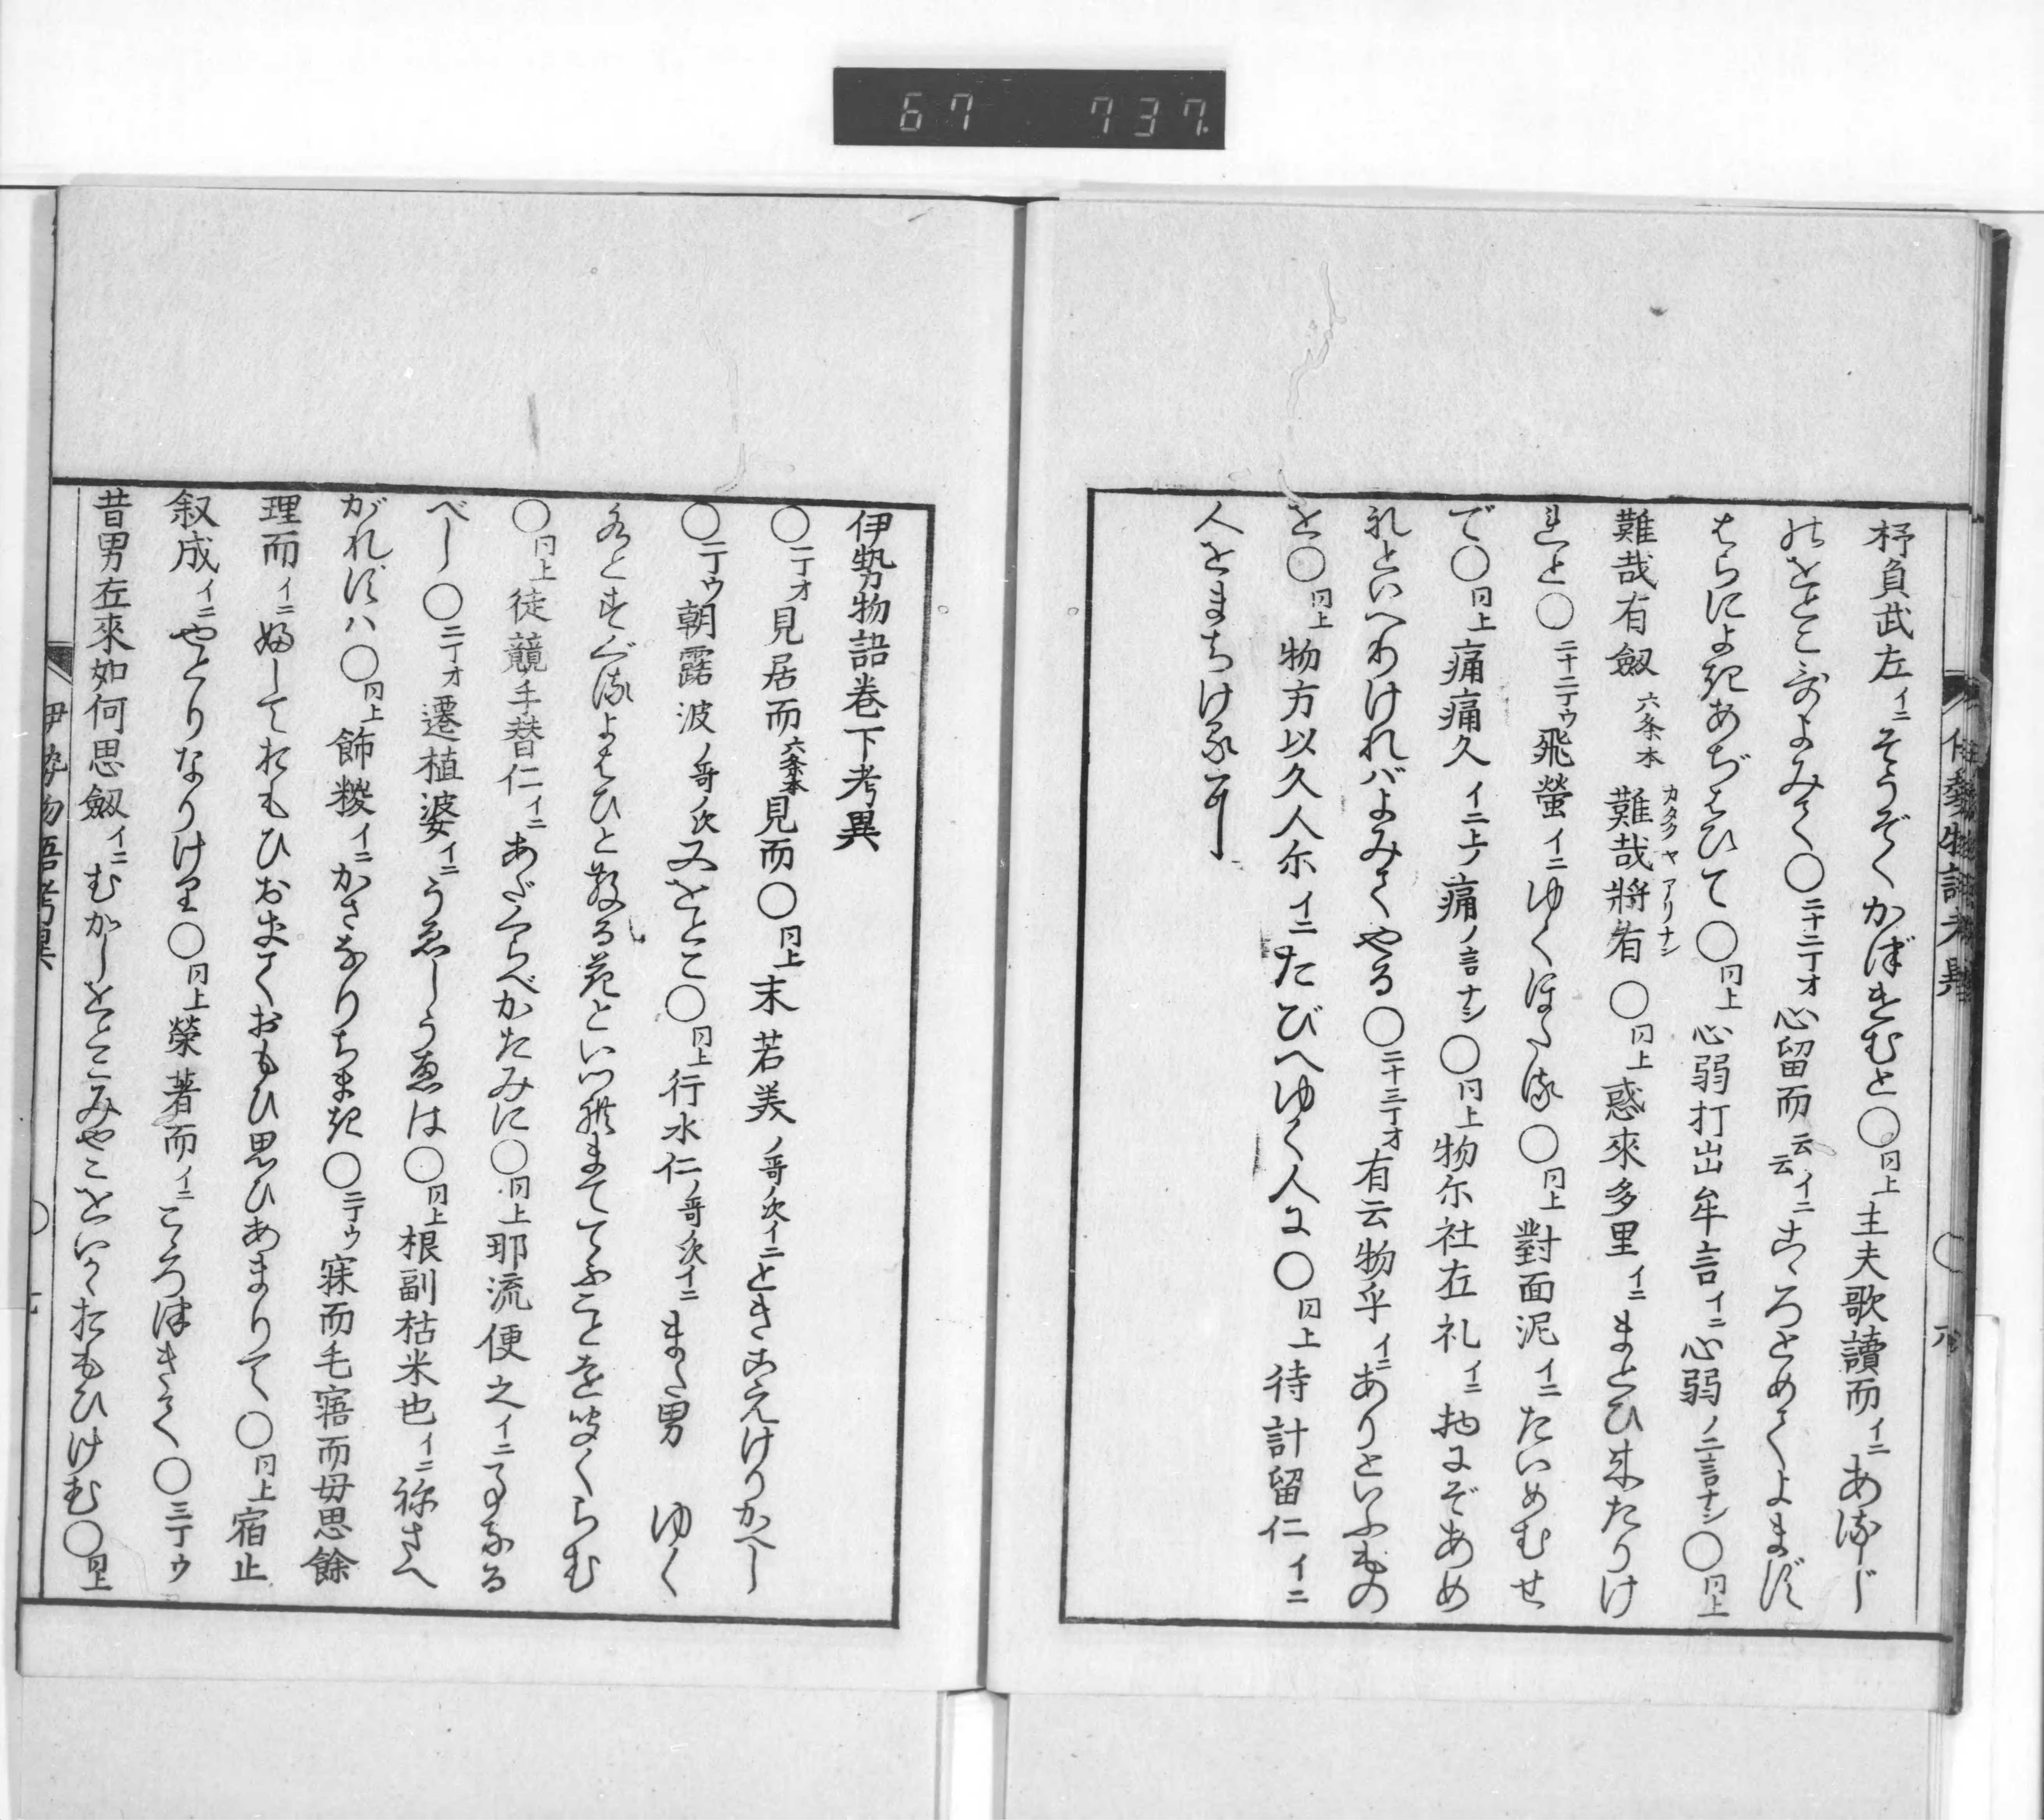 67 737
杼負武左イニそうぞくかづけむと〇冃上主夫歌讀而イニあるじ
のをとこ哥よみて〇二十二丁オ心留而云云イニこゝろとめてよまず
はらによみあぢはひて〇冃上心弱打出牟言イニ心弱ノ二言ナシ〇冃上
難哉有劔六条本難哉將有カタクヤアリナン〇冃上惑來多里イニまとひ来たりけ
れと〇二十二丁ウ飛螢イニゆくほたる〇冃上對面泥イニたいめむせ
で〇冃上痛痛久イニ上ノ痛ノ言ナシ〇冃上物尓社在礼イニ物にぞあめ
れといへりけれバよみてやる〇二十三丁オ有云物乎イニありといふもの
を〇冃上物方以久人尓イニたびへゆく人に〇冃上待計留仁イニ
人をまちける耳
伊勢物語考異
伊勢物語卷下考異
〇二丁オ見居而六条本見而〇冃上末若美ノ哥ノ次イニときこえけりかへし
〇二丁ウ朝露波ノ哥ノ次又をとこ〇冃上行水仁ノ哥ノ次イニまた男 ゆく
水とすぐるよはひと散る花といつれまててふことを聞くらむ
〇冃上徒競手替仁イニあだくらべかたみに〇冃上耶流便之イニ
べし〇二丁オ遷植婆イニうゑしうゑは〇冃上根副枯米也イニ祢さへ
がれバ〇冃上飾糉イニかさなりちまき〇二丁ウ寐而毛寤而毋思餘
理而イニねてもひおきておもひ思ひあまりて〇冃上宿止
叙成イニやとりなりける〇冃上榮著而イニこゝろつきて〇三丁ウ
昔男在來如何思劔イニむかしをとこみやこをいかゝおもひけむ〇冃上
伊勢物語考異